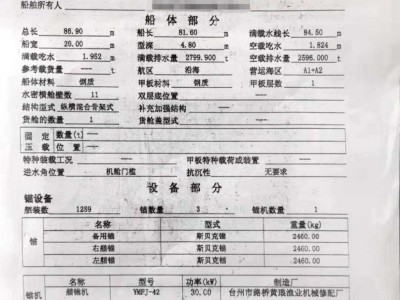 船舶所有人
船 体 部 分
总长 86.90 m 船长 81.60 m 满载水线长 84.50 m
船宽 20.00 m 型深 4.80 m 空载吃水 1.824 m
满载吃水 1.952 m 满载排水量 2799.900 t 空载排水量 2596.000 t
参考载货量 --- t 航区 沿海 营运海区 A1+A2
船体材料 钢质 甲板材料 钢质 甲板层数 1
水密横舱壁数 11 双层底位置
结构型式 纵横混合骨架式 补充加强结构 ---
货舱的数量 货舱盖型式 ---
固 定 数量(t) ---
压 载 位 置 ---
特种装载工况 --- 甲板特种载荷或装置 ---
进水角位置 机舱门槛 抗沉性 无要求
设 备 部 分
锚设备
舾装数 1289 锚数量 3 锚机数量 1
名称 型式 重量(kg)
锚 备用锚 斯贝克锚 2460.00
右艏锚 斯贝克锚 2460.00
左艏锚 斯贝克锚 2460.00
名称 型号 功率(kW) 制造厂
锚 艏锚机 YMPJ-42 30.00 台州市路桥黄琅渔业机械修配厂
机